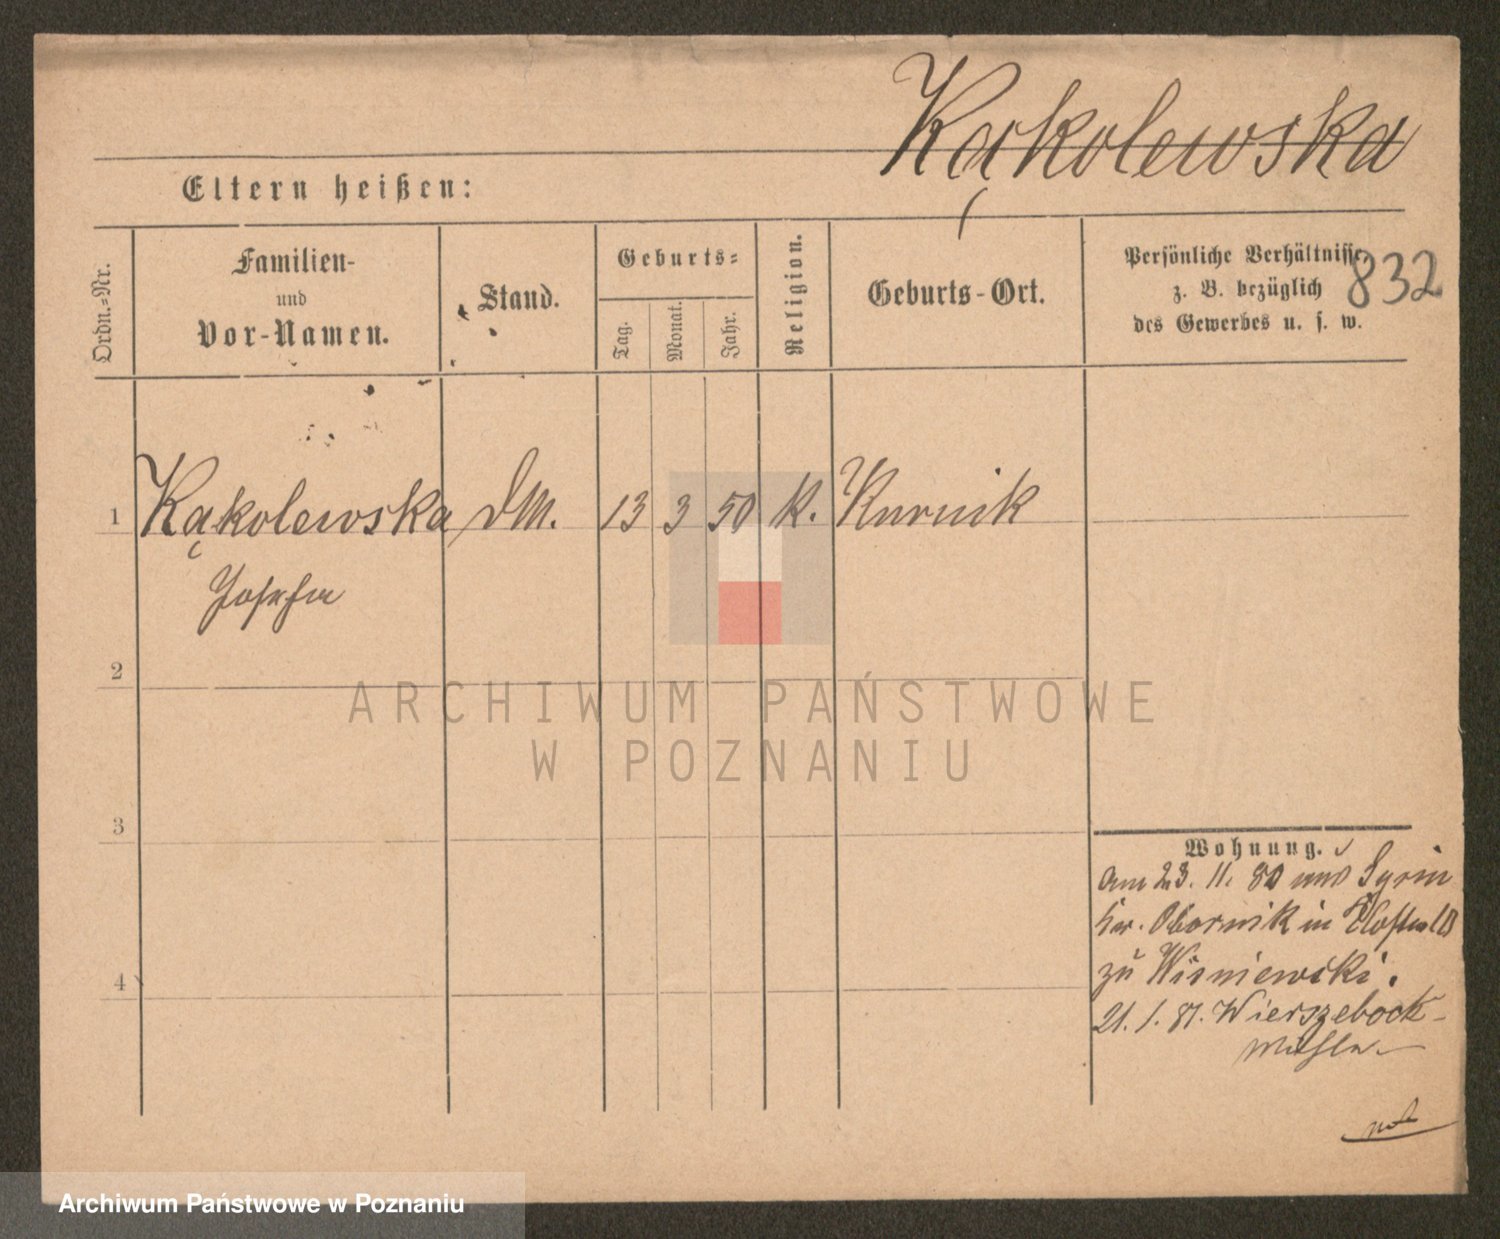 Kąkolewska
Eltern heißen:
832
Ordn.=Nr.
Familien-
und
Vor-Namen.
Stand.
Geburts=
Tag.
Monat.
Jahr.
Religion.
Geburts-Ort.
Persönliche Verhältnisse,
z. B. bezüglich
des Gewerbes u. s. w.
1 Kąkolewska DM. 13 3 50 K. Kurnik
Josefa
2
3
4
ARCHIWUM PAŃSTWOWE
W POZNANIU
Wohnung.
am 23. 11. 80 aus
Kr. Obornik in
zu Wisniewski.
21. 1. 81. Wierszebock-
mühle.
Archiwum Państwowe w Poznaniu